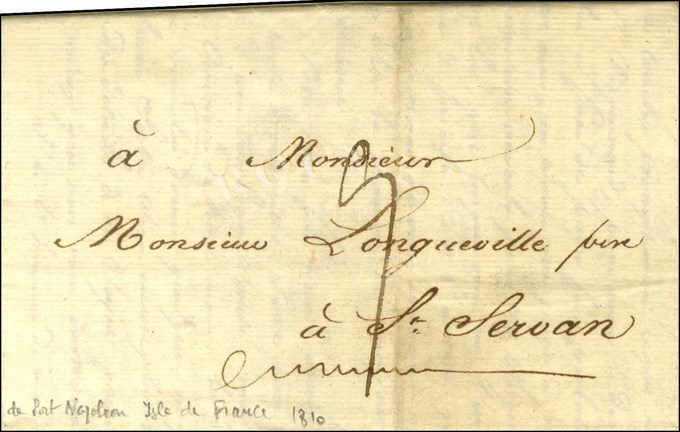 à Monsieur
Monsieur Longueville père
à St. Servan
de Port Napoléon Isle de France 1810